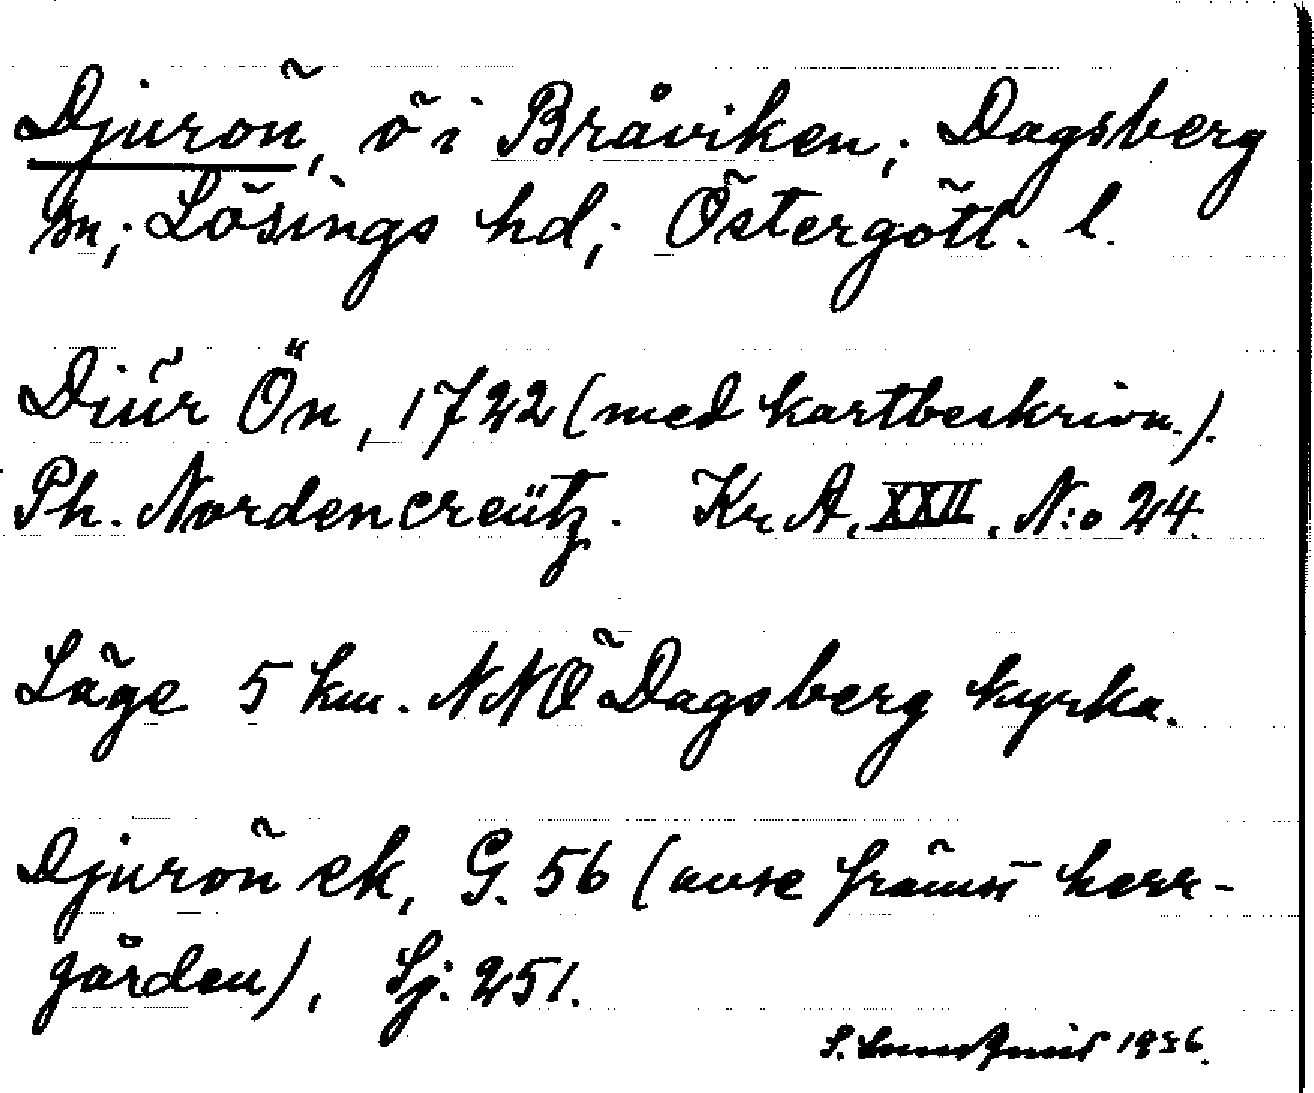 Djurön, ö i Bråviken; Dagsberg
sn; Lösings hd; Östergötl. l.
Diur Ön, 1722 (med kartbeskrivn.).
Ph. Nordencreütz. Kr. A. XXII. N:o 24.
Läge 5 km. NNÖ Dagsberg kyrka.
Djurön ek, G. 56 (avse främst herr-
gården), Sj: 251.
S. 1936.